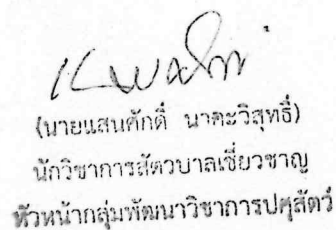 (นายแสนศักดิ์ นาคะวิสุทธิ์)
นักวิชาการสัตวบาลเชี่ยวชาญ
หัวหน้ากลุ่มพัฒนาวิชาการปศุสัตว์